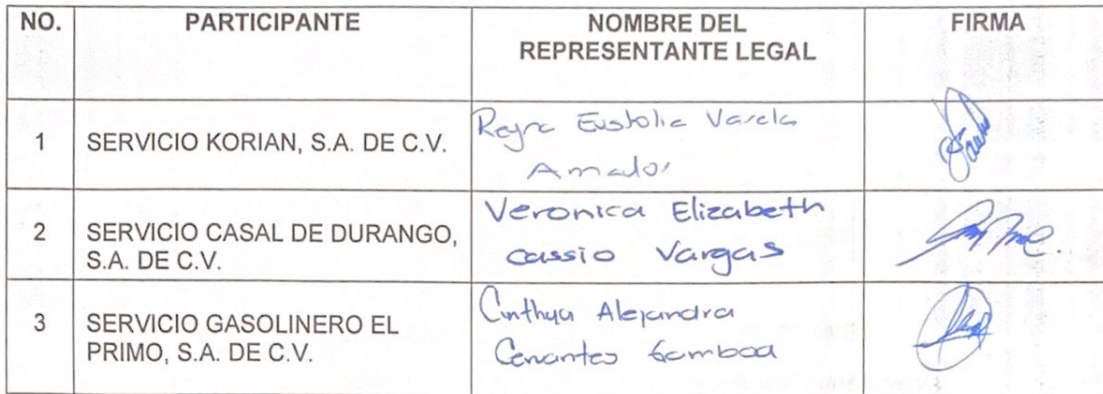 NO. PARTICIPANTE NOMBRE DEL REPRESENTANTE LEGAL FIRMA
1 SERVICIO KORIAN, S.A. DE C.V. Reyna Eustolia Varela
Amador
2 SERVICIO CASAL DE DURANGO, S.A. DE C.V. Veronica Elizabeth
cassio Vargas
3 SERVICIO GASOLINERO EL PRIMO, S.A. DE C.V. Cinthya Alejandra
Cervantes Gamboa